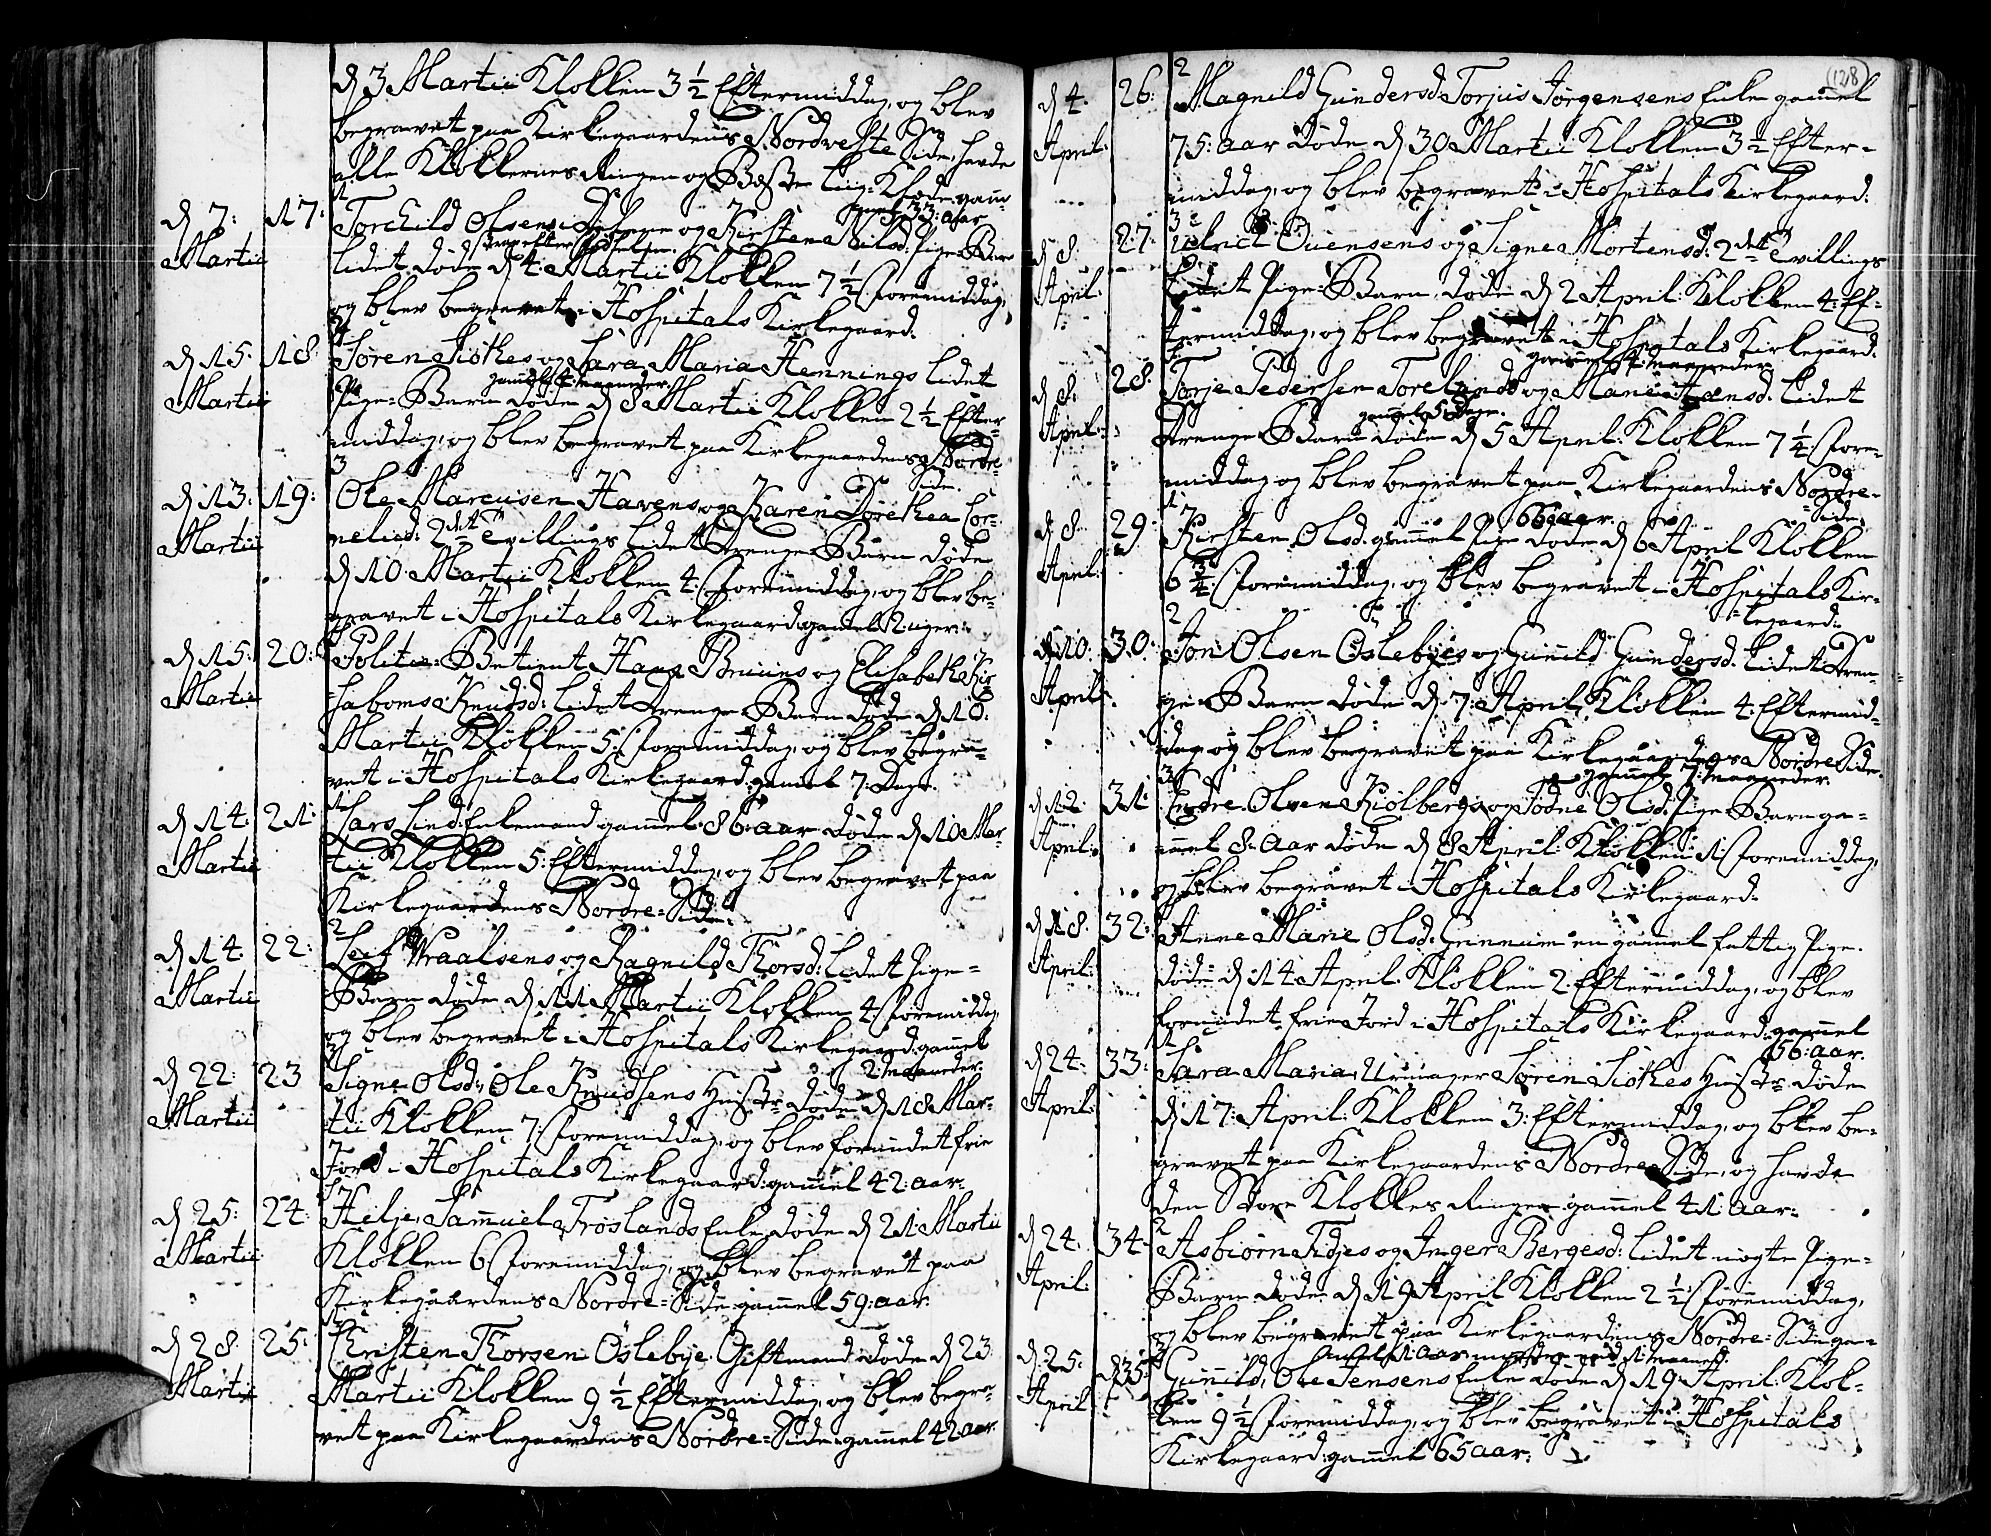 d 3 Martii Klokken 3 1/2 Eftermiddag, og blev
begravet paa Kirkegaardens Nordveste Side, havde
alle Klokkernes Ringen og Beste Liig-Klæde gam-
mel 33: aar
d 7: Martii 17: Torchild Olsens og Kirsten Nilsd: Pige-Barn
lidet døde d 4 Martii Klokken 7 1/2 Formiddag,
og blev begravet i Hospitals Kirkegaard.
d 15: Martii 18: Søren Siøthes og Sara Maria Hennings lidet
gammel 4 Maaneder
Pige-Barn døde d 8 Martii Klokken 2 1/2 Efter-
middag, og blev begravet paa Kirkegaardens Nordre-
Side.
3
d 13: Martii 19: Ole Marcusen Havens og Karen Dorethea Cor-
nelied: 2de Tvillings lidet Drenge-Børn døde
d 10 Martii Klokken 4 Formiddag, og blev be-
gravet i Hospitals Kirkegaard: gamel 2 uger.
d 15: Martii 20: Politie-Betient Hans Bruuns og Elisabeth
Knudsd: lidet Drenge-Barn døde d 10:
Martii Klokken 5: Formiddag, og blev begra-
vet i Hospitals Kirkegaard: gamel 7: Dage.
d 14: Martii 21: Lars Lind: Enkemand gammel 86: aar døde d 10 Mar-
tii Klokken 5: Eftermiddag, og blev begravet paa
Kirkegaardens Nordre-Side.
2
d 14 Martii 22: Leif Wraalsens og Ragnild Thorsd: lidet Pige-
Barn døde d 11 Martii Klokken 4: Formiddag,
og blev begravet i Hospitals Kirkegaard: gammel
2: Maaneder.
d 22: Martii 23 Signe Olsd: Ole Knudsens Hustr: døde d 18 Mar-
tii Klokken 7: Formiddag, og blev forundet frie
Jord i Hospitals Kirkegaard: gammel 42: aar.
d 25: Martii 24: Helje, Samuel Frøslands Enke døde d 21 Martii
Klokken 6 Formiddag, og blev begravet paa
Kirkegaardens Nordre-Side gammel 59: aar.
d 28 Martii 25: Christen Thorsen Oslebye Giftmand døde d 23:
Martii Klokken 9 1/2 Eftermiddag, og blev begra-
vet paa Kirkegaardens Nordre-Side: gammel 42 aar.
(128)
2
d 4. April: 26: Magnild Gundersd: Torjus Jørgensens Enke gammel
75: aar døde d 30 Martii Klokken 3 1/2 Efter-
middag, og blev begravet i Hospitals Kirkegaard.
3
d 8. April: 27: Ulrich Ouensens og Signe Mortensd: 2de Tvillings
lidet Pige-Barn, døde d 2 April Klokken 4: Ef-
termiddag, og blev begravet i Hospitals Kirkegaard.
gammel Maaneder
d 8. April: 28: Torje Pedersen Torelands og Marie Hansd: lidet
gammel 5 Dage.
Drenge Barn døde d 5 April: Klokken 7 1/4 Fore-
middag og blev begravet paa Kirkegaardens Nordre-
Side.
66 aar.
d 8 April: 29: Kirsten Olsd: gammel Pige døde d 6 April Klokken
6 3/4 Formiddag, og blev begravet i Hospitals Kir-
kegaard:
2
d 10. April: 30: Jon Olsen Oslebyes og Gunild Gundersd: lidet Dren-
ge-Barn døde d 7: April Klokken 4: Eftermid-
dag og blev begravet paa Kirkegaardens Nordre Side.
gammel 7: Maaneder.
3
d 12. April: 31: Endre Olsen Kiølbergs og Jødne Olsd: Pige-Barn ga-
mmel 8 Aar døde d 8 April: Klokken 11 Formiddag,
og blev begravet i Hospitals Kirkegaard:
d 18. April: 32: Anne Marie Olsd: Grinnum en gammel fattig Pige.
døde d 14 April. Klokken 2. Eftermiddag, og blev
forundet frie Jord i Hospitals Kirkegaard: gammel
56: aar.
d 24. April: 33: Sara Maria, Urmager Søren Siøthes Hustr: døde
d 17: April: Klokken 3: Eftermiddag, og blev be-
gravet paa Kirkegaardens Nordre Side, og havde
den Store Klokkes Ringen gammel 41: aar.
2
d 24. April: 34: Asbiørn Tidjes og Inger Bergesd: lidet uægte Pige-
Barn døde d 19 April Klokken 2 1/2 Formiddag,
og blev begravet paa Kirkegaardens Nordre-Side ga-
mmel 1 Aar
3
d 25. April 35: Gunild, Ole Jensens Enke døde d 19: April: Klok-
ken 9 1/2 Formiddag, og blev begravet i Hospitals
Kirkegaard: gammel 65 aar: